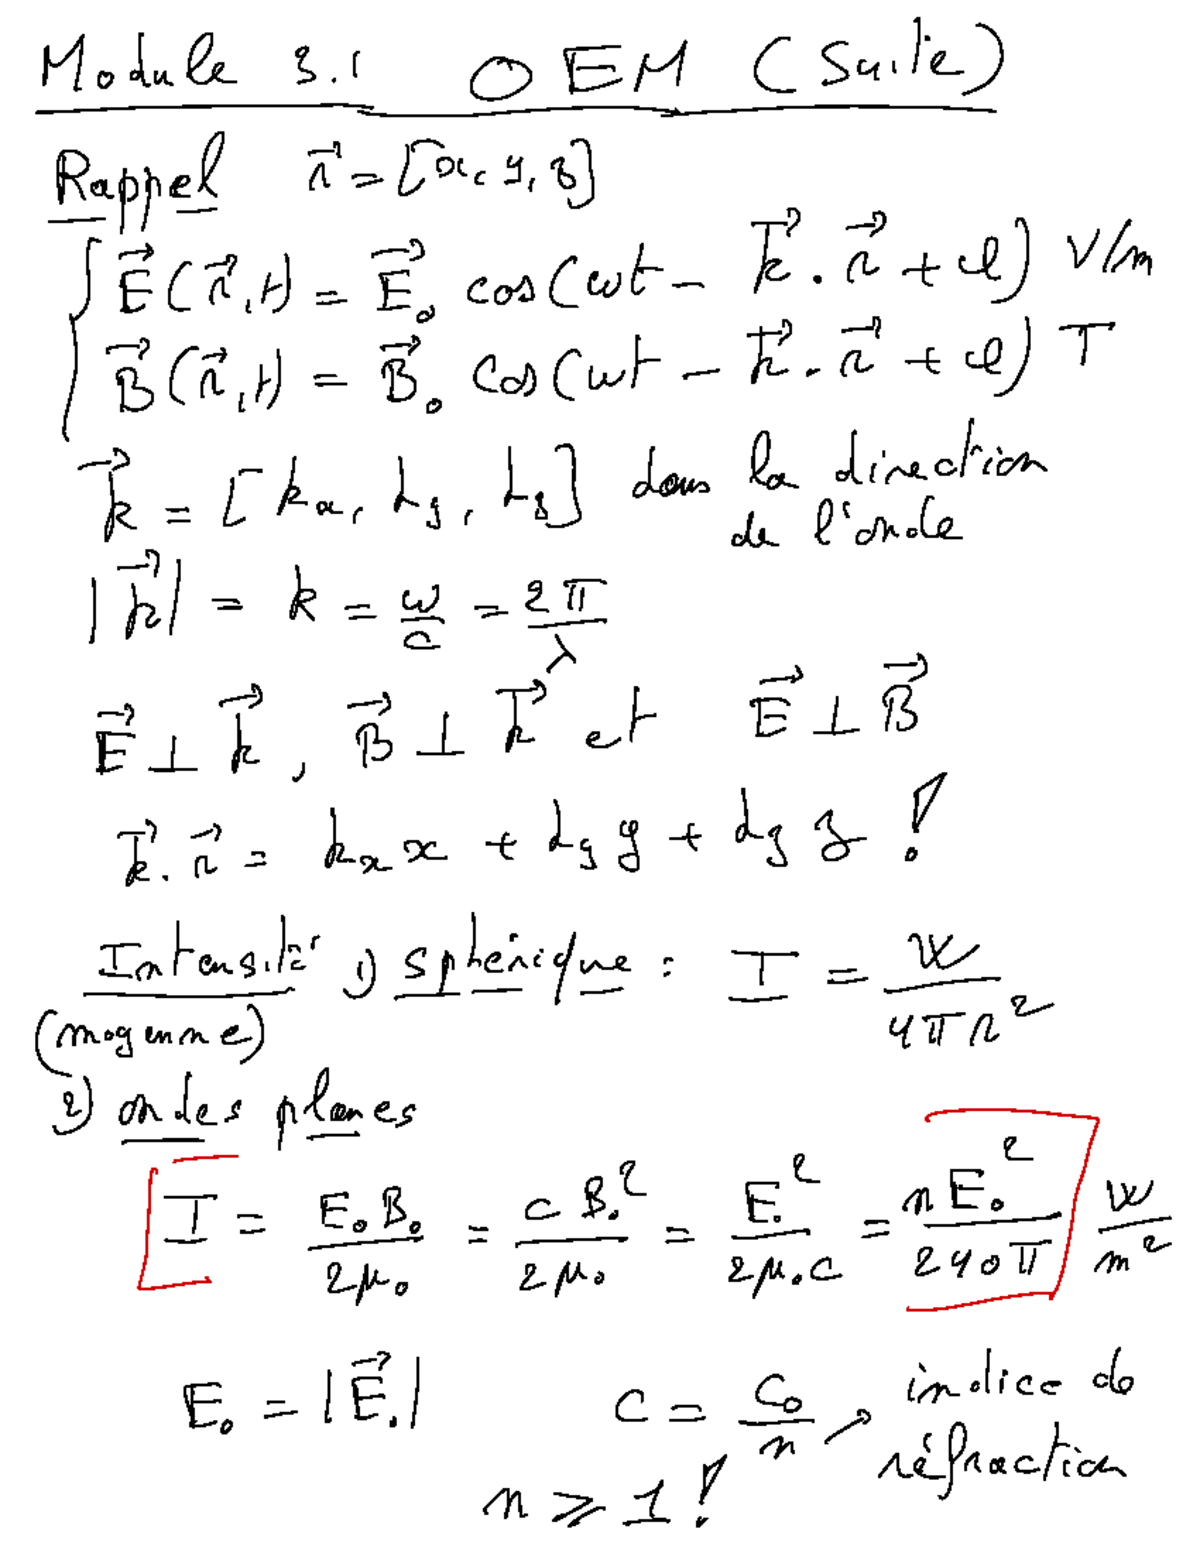 Module 3.1 OEM (Suite)
Rappel r⃗ = [x, y, z]
E⃗(r⃗,t) = E⃗₀ cos(ωt − k⃗·r⃗ + φ) V/m
B⃗(r⃗,t) = B⃗₀ cos(ωt − k⃗·r⃗ + φ) T
k⃗ = [kx, ky, kz] dans la direction
de l'onde
|k⃗| = k = ω/c = 2π/λ
E⃗ ⊥ k⃗, B⃗ ⊥ k⃗ et E⃗ ⊥ B⃗
k⃗·r⃗ = kx x + ky y + kz z !
Intensité 1) sphérique : I = W/4πr²
(moyenne)
2) ondes planes
I = E₀B₀/2μ₀ = cB₀²/2μ₀ = E₀²/2μ₀c = nE₀²/240π W/m²
E₀ = |E⃗₀| c = c₀/n → indice de
réfraction
n ≥ 1 !